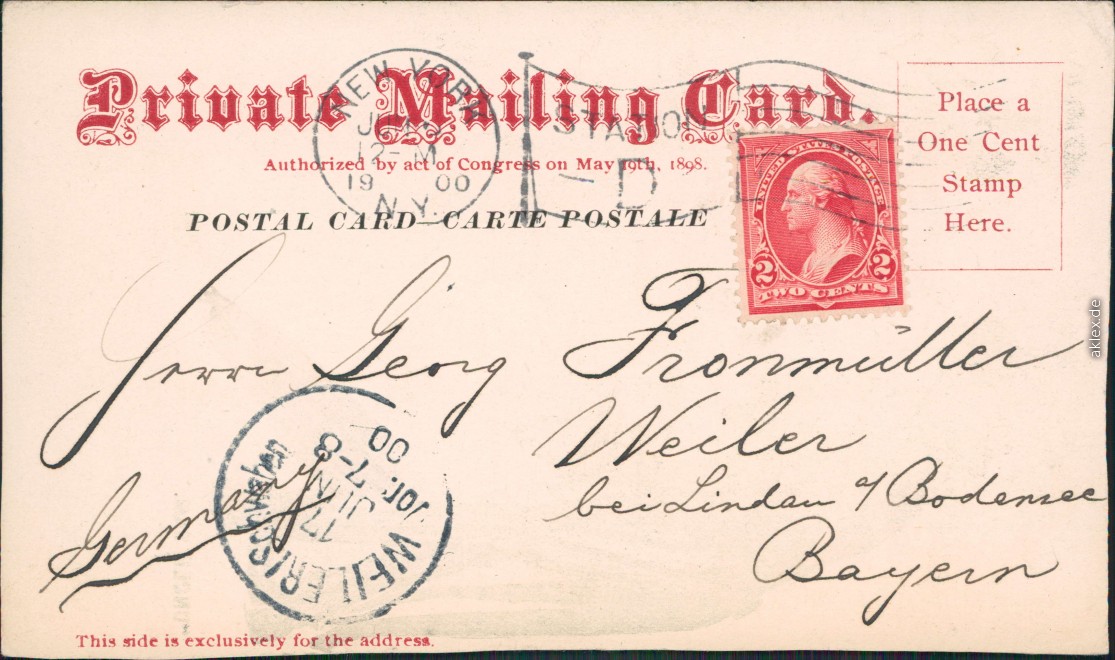 Private Mailing Card.
Authorized by act of Congress on May 19th, 1898.
POSTAL CARD—CARTE POSTALE
Place a
One Cent
Stamp
Here.
NEW YORK
19 00
N.Y.
STATION
D
UNITED STATES POSTAGE
2 2
TWO CENTS
Herrn Georg Fronmüller
Weiler
bei Lindau a/Bodensee
Bayern
Germany
WEILER (Schwaben)
17
JUN
7-8
Vor.
00
This side is exclusively for the address.
aklex.de